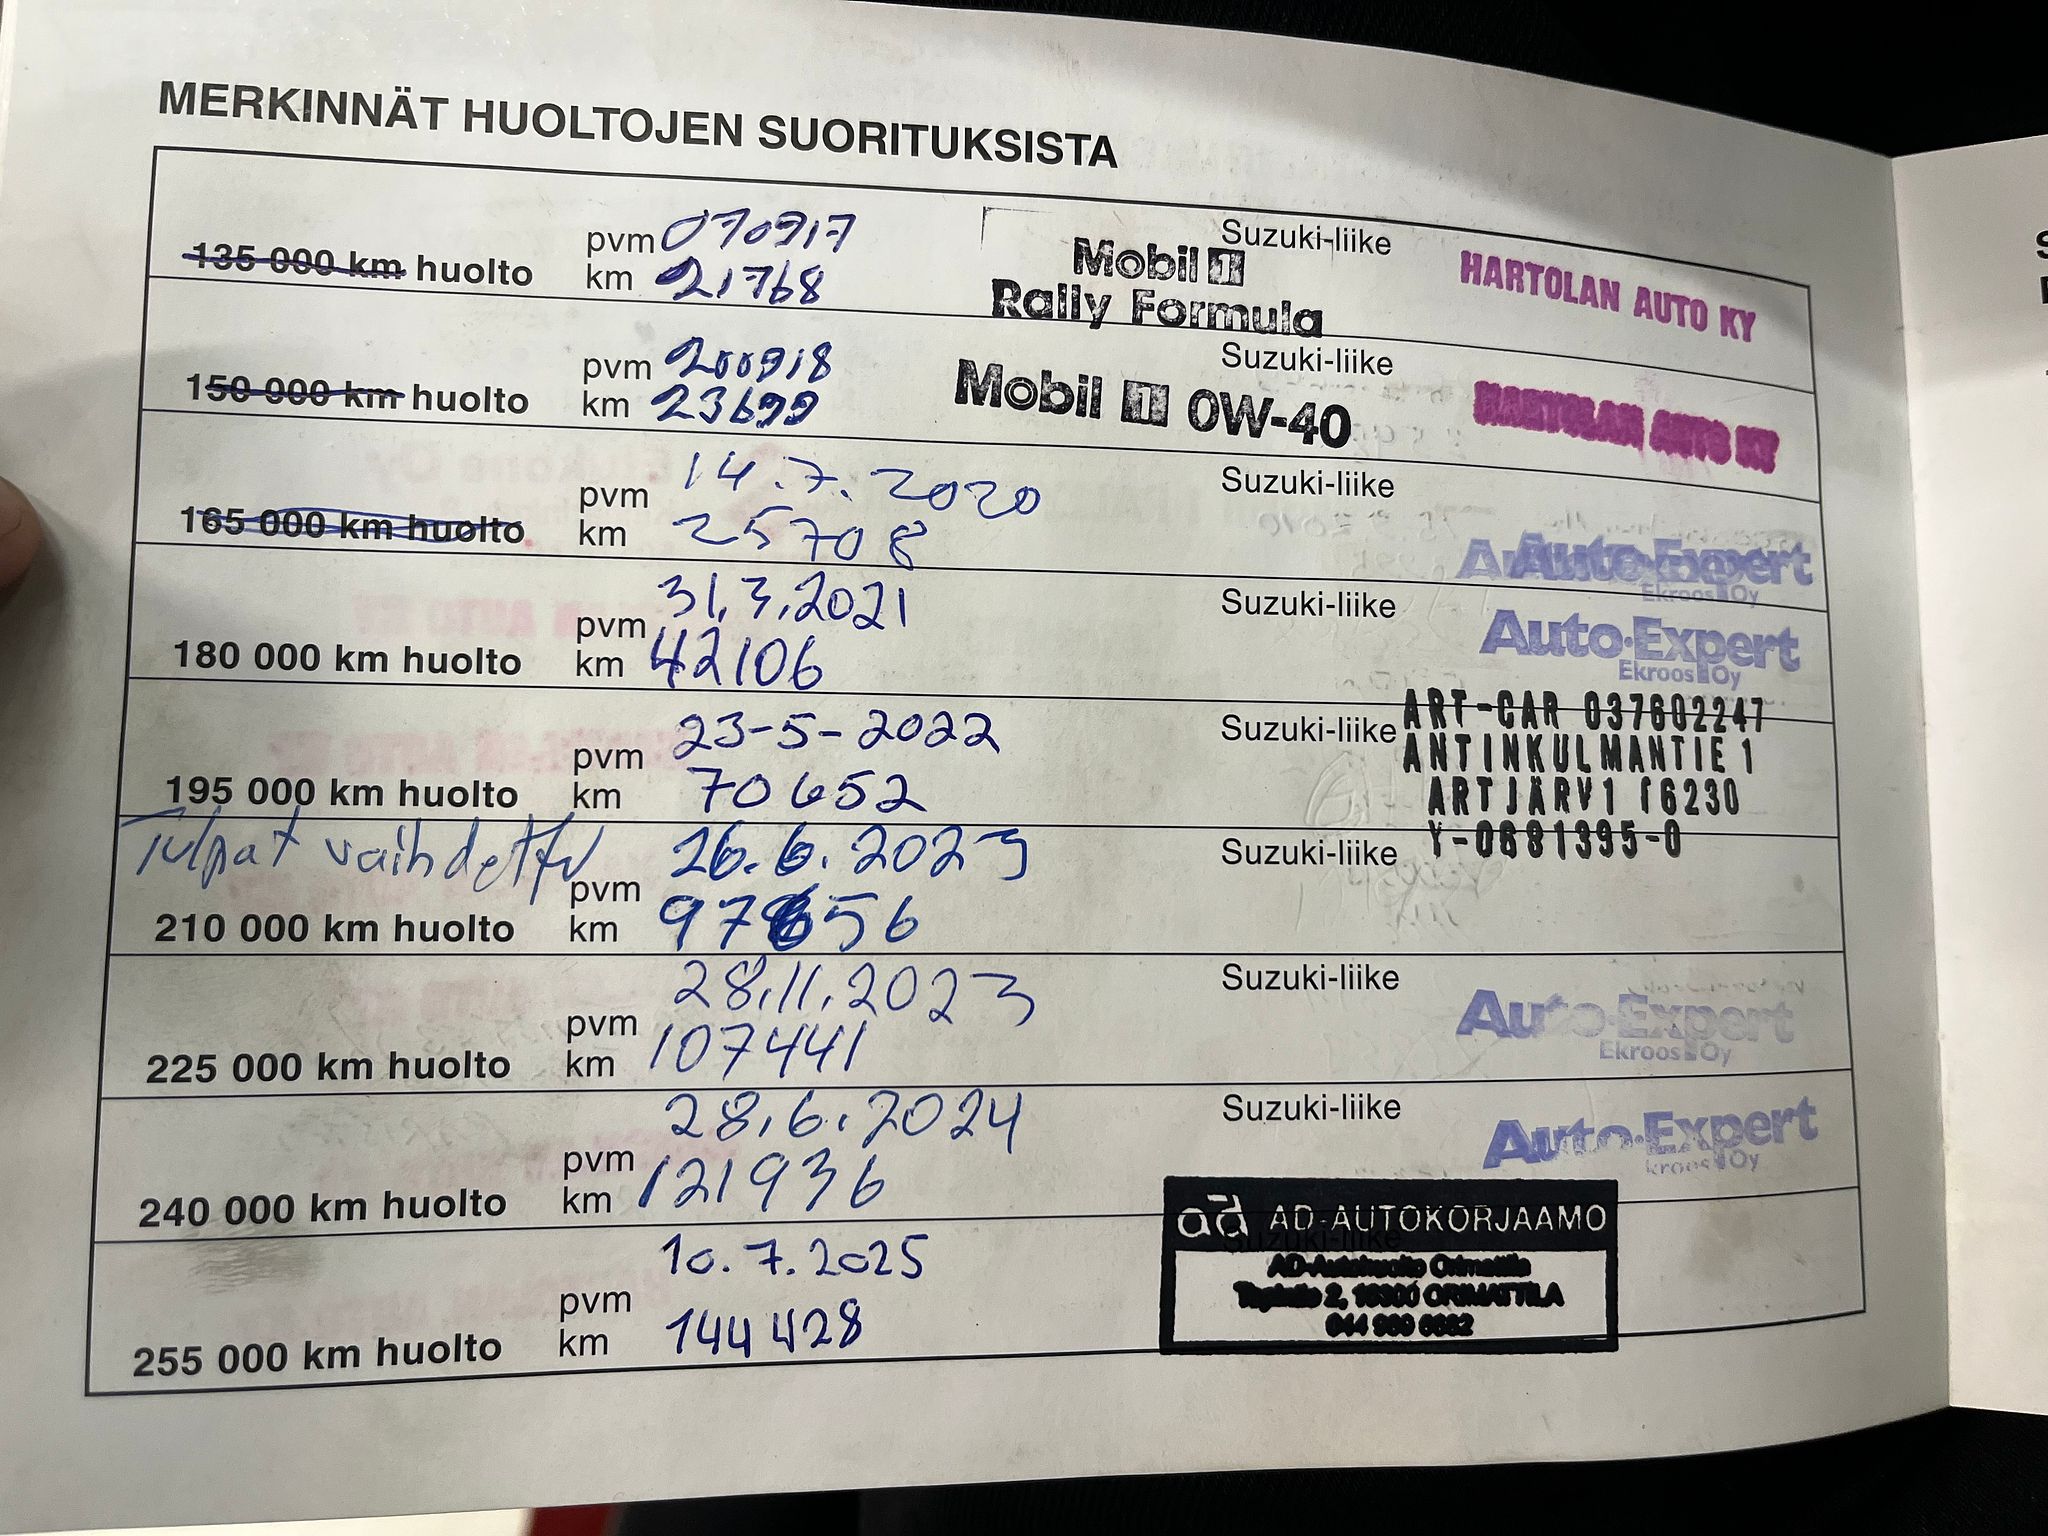 MERKINNÄT HUOLTOJEN SUORITUKSISTA
135 000 km huolto pvm 070917 Suzuki-liike
km 21768 Mobil 1 HARTOLAN AUTO KY
Rally Formula
150 000 km huolto pvm 200918 Suzuki-liike
km 23699 Mobil 1 0W-40 HARTOLAN AUTO KY
165 000 km huolto pvm 14.7.2020 Suzuki-liike
km 25708 Auto-Expert
Ekroos Oy
180 000 km huolto pvm 31.3.2021 Suzuki-liike
km 42106 Auto-Expert
Ekroos Oy
195 000 km huolto pvm 23-5-2022 Suzuki-liike
km 70652
ART-CAR 037602247
ANTINKULMANTIE 1
ARTJÄRVI 16230
Y-0681395-0
Tulpat vaihdettu
210 000 km huolto pvm 26.6.2023 Suzuki-liike
km 97656
225 000 km huolto pvm 28.11.2023 Suzuki-liike
km 107441 Auto-Expert
Ekroos Oy
240 000 km huolto pvm 28.6.2024 Suzuki-liike
km 121936 Auto-Expert
kroos Oy
255 000 km huolto pvm 10.7.2025 Suzuki-liike
km 144428
ad AD-AUTOKORJAAMO
AD-Autohuolto Orimattila
2, 16300 ORIMATTILA